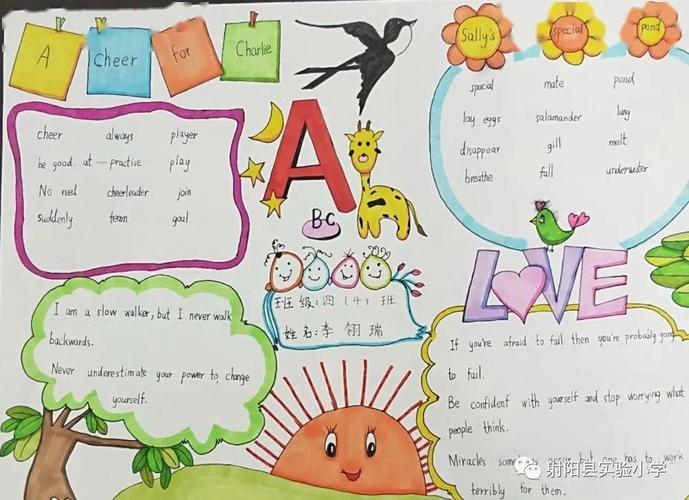 A Cheer for Charlie
Sally's special pond
cheer always player
be good at — practise play
No need cheerleader join
suddenly team goal
A
BC
special mate pond
lay eggs salamander lung
disappear gill melt
breathe fall underwater
LOVE
班级:四(4)班
姓名:李翎瑞
I am a slow walker, but I never walk
backwards.
Never underestimate your power to change
yourself.
If you're afraid to fail then you're probably going
to fail.
Be confident with yourself and stop worrying what
people think.
Miracles occur but one has to work
terribly for them.
射阳县实验小学